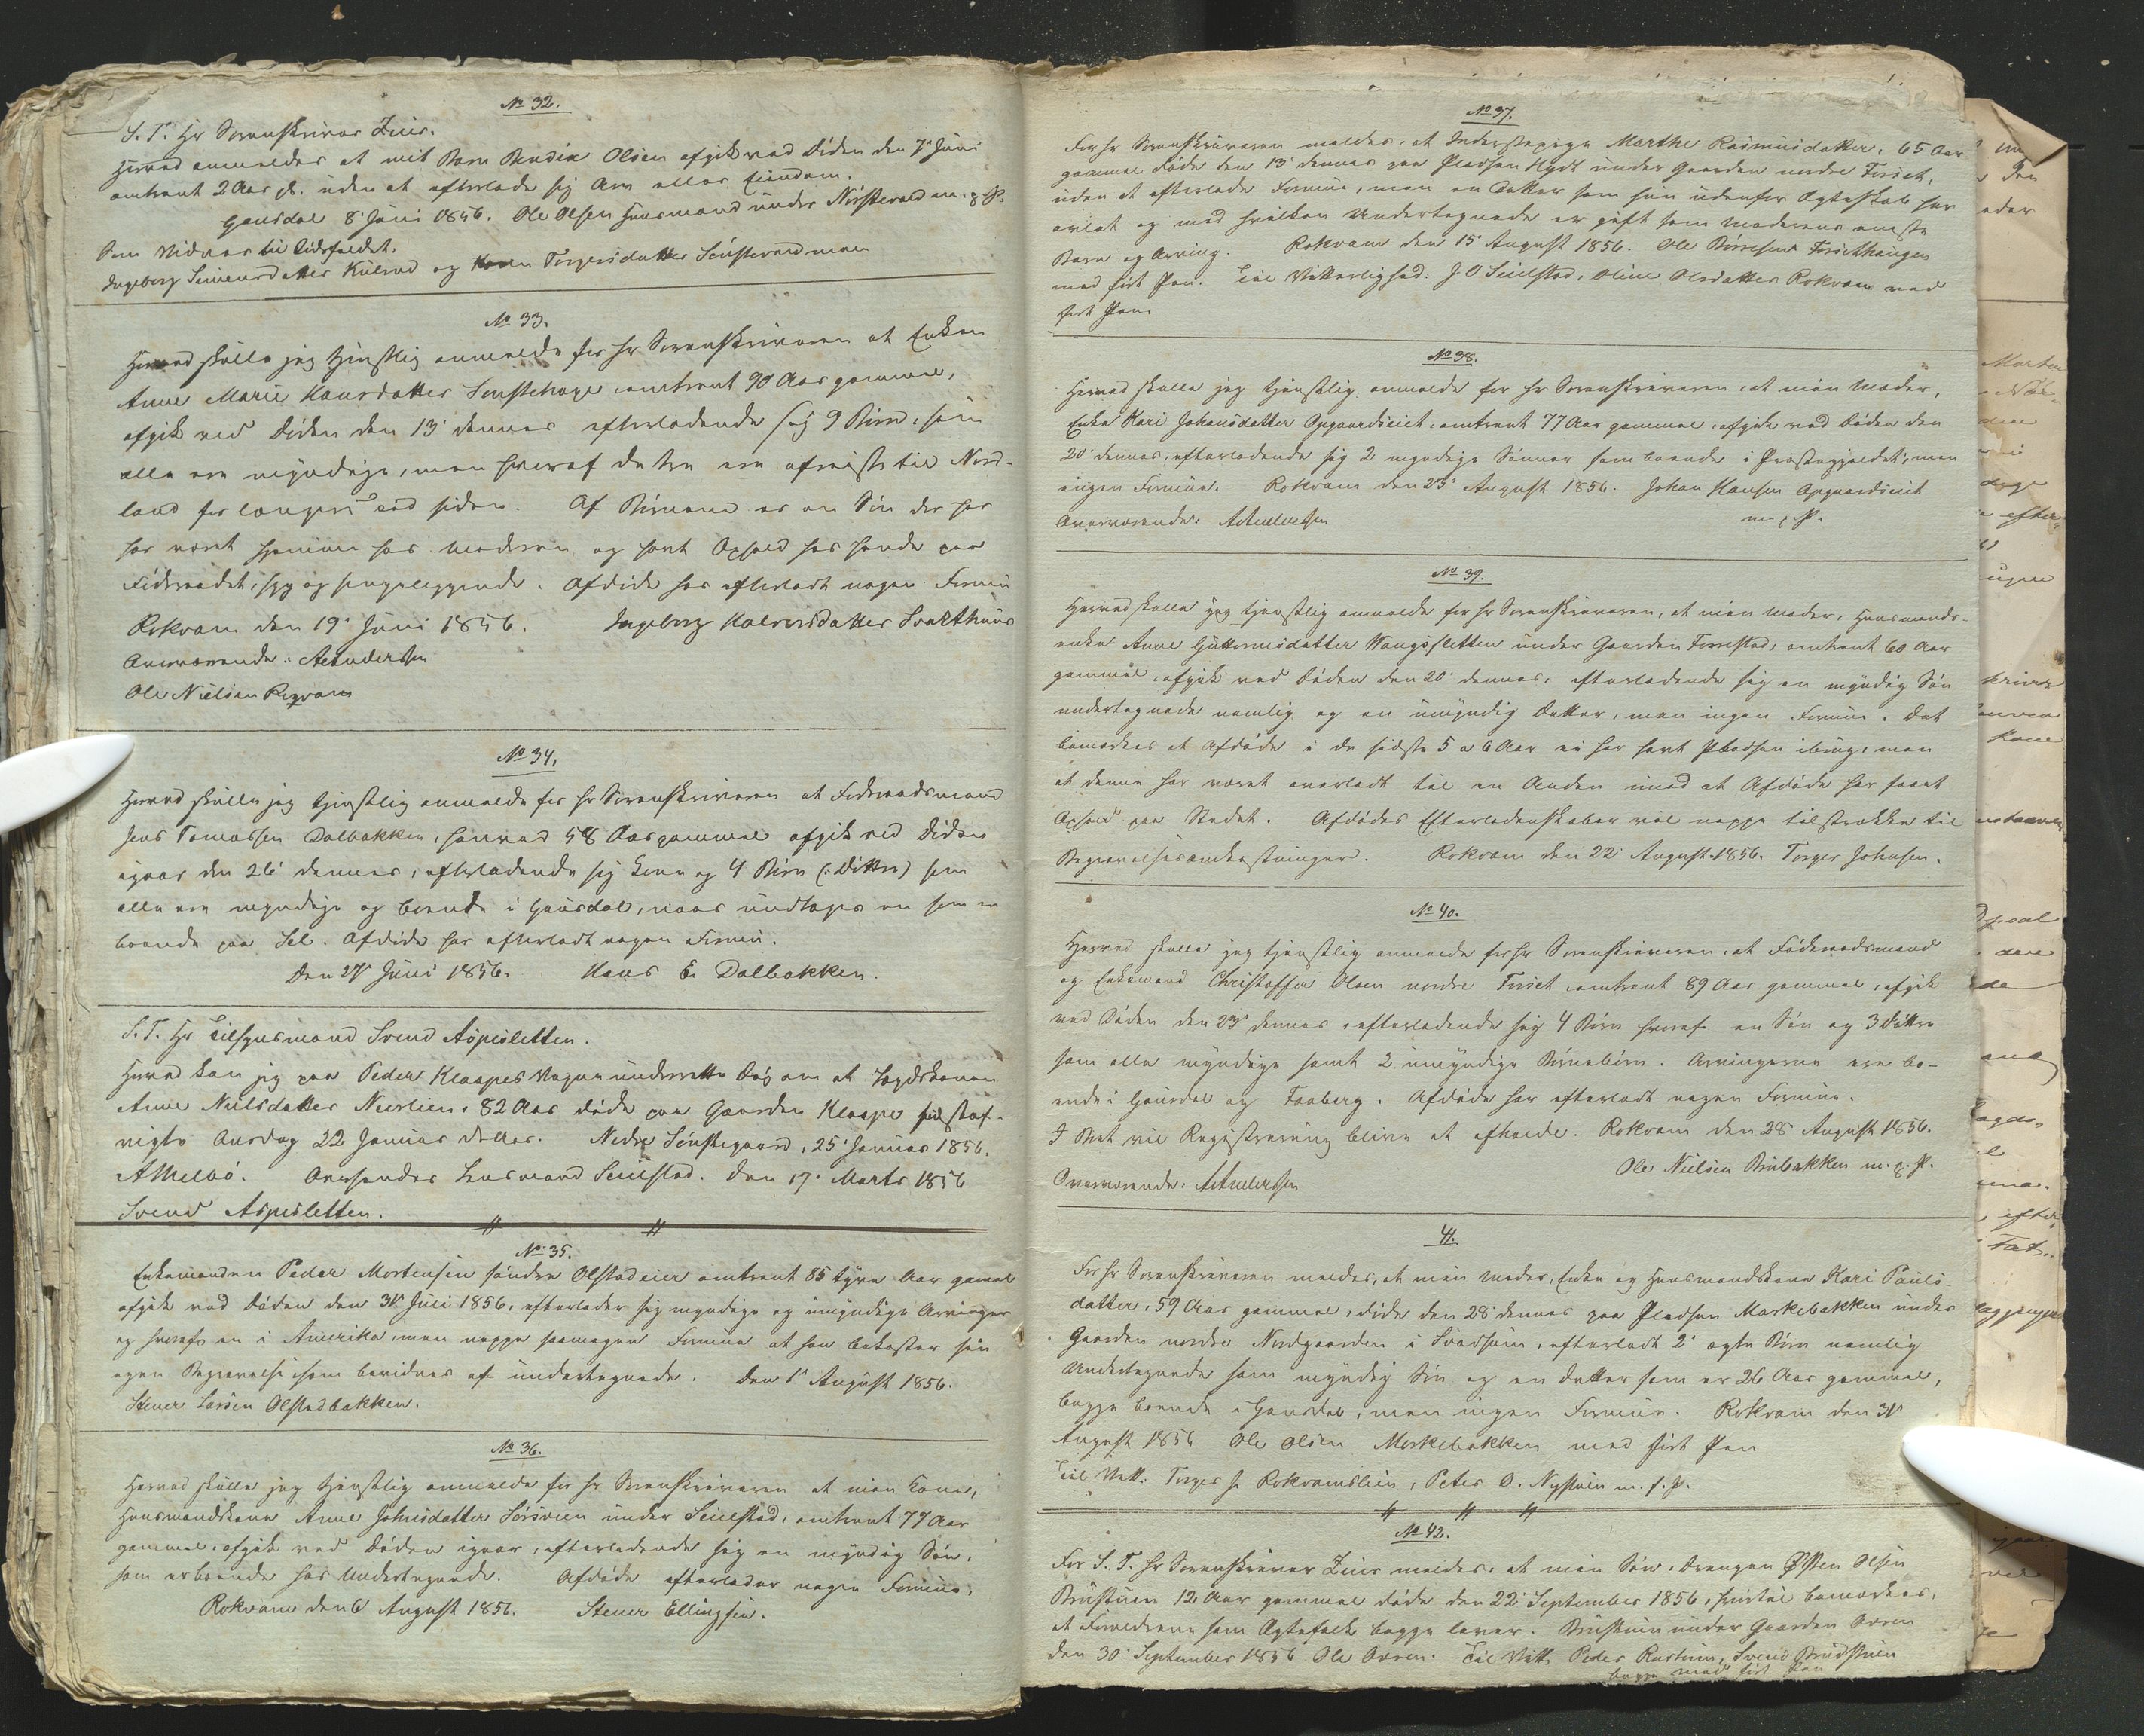 No 32.
S. T. Hr Sorenskriver Zuis.
Herved anmeldes at mit Barn Bendix Olsen afgik ved Døden den 7de Juni
omtrent 2 Aar gl. uden at efterlade sig Arv eller Eiendom.
Gausdal 8' Juni 1856. Ole Olsen Huusmand under Nørstevold m. p. P.
Som Vidner til Dødsfaldet.
Ingeborg Simensdatter Kulrud og Karen Torgersdatter Sønstevold
No 33.
Herved skulle jeg tjenstlig anmelde for Hr Sorenskriveren at Enken
Anne Marie Hansdatter Sønstehage omtrent 90 Aar gammel,
afgik ved Døden den 13' dennes efterladende sig 9 Børn, som
alle ere myndige, men hvoraf de tre ere afreiste til Nord-
land for længere Tid siden. Af Børnene er en Søn der har
har været hjemme hos Moderen og havt Ophold hos hende paa
Føderaadet, syg og sengeliggende. Afdøde har efterladt nogen Formue
Rokvam den 19' Juni 1856. Ingeborg Halvorsdatter Svarthuus
Overværende: AAndersen
Ole Nielsen Rogvam
No 34.
Herved skulle jeg tjenstlig anmelde for Hr Sorenskriveren at Føderaadsmand
Jens Tomassen Dalbakken, henved 58 Aar gammel afgik ved Døden
igaar den 26' dennes, efterladende sig Kone og 4 Børn (: Døttre) som
alle ere myndige og boende i Gausdal, naar undtages en som er
boende paa Sel. Afdøde har efterladt nogen Formue.
Den 27' Juni 1856. Hans E. Dalbakken.
S. T. Hr Tilsynsmand Svend Aspesletten.
Herved kan jeg paa Peder Klaapes Vegne underrette Dig om at Lægdskonen
Anne Nielsdatter Neerlien, 82 Aar døde paa Gaarden Klaape sidstaf-
vigte Onsdag 22 Januar d. Aar. Nedre Sønstegaard, 25' Januar 1856.
AMelbø. Oversendes Lensmand Seielstad. Den 17' Marts 1856
Svend Aspesletten.
No 35.
Enkemanden Peder Mortensen søndre Olstadeier omtrent 85 Aar gamel
afgik ved Døden den 31' Juli 1856, efterlader sig myndige og umyndige Arvinger
og hvoraf en i Amerika, men neppe saamegen Formue at han bekoster sin
egen Begravelse som bevidnes af undertegnede. Den 1' August 1856.
Stener Larsen Olstadbakken.
No 36.
Herved skulle jeg tjenstlig anmelde for Hr Sorenskriveren at min Kone,
Huusmandskone Anne Johnsdatter Sørsveen under Seielstad, omtrent 77 Aar
gammel, afgik ved Døden igaar, efterladende sig en myndig Søn,
som er boende hos Undertegnede. Afdøde efterlader nogen Formue.
Rokvam den 6 August 1856. Stener Ellingsen.
No 37.
For Hr Sorenskriveren meldes, at Inderstepige Marthe Rasmusdatter, 65 Aar
gammel døde den 13' dennes paa Pladsen Nydt under Gaarden nordre Forset,
uden at efterlade Formue, men en Datter som hun udenfor Ægteskab har
avlet og med hvilken Undertegnede er gift som Moderens eneste
Barn og Arving. Rokvam den 15' August 1856. Ole Forsethhaugen
med ført Pen. Til Vitterlighed: J O Seielstad, Oline Olsdatter Rokvam med
ført Pen.
No 38.
Herved skulle jeg tjenstlig anmelde for Hr Sorenskriveren, at min Moder,
Enke Kari Johansdatter Opgaardseiet, omtrent 77 Aar gammel, afgik ved Døden den
20' dennes, efterladende sig 2 myndige Sønner som boende i Præstegjeldet, men
ingen Formue. Rokvam den 23' August 1856. Johan Hansen Opgaardseiet
Overværende: AAndersen m. p. P.
No 39.
Herved skulle jeg tjenstlig anmelde for Hr Sorenskriveren, at min Moder, Huusmands-
enke Anne Guttormsdatter Vangssletten under Gaarden Forrestad, omtrent 60 Aar
gammel, afgik ved Døden den 20' dennes, efterladende sig en myndig Søn
undertegnede nemlig og en umyndig Datter, men ingen Formue. Det
bemærkes at Afdøde i de sidste 5 a 6 Aar ei har havt Pladsen ibrug, men
at denne har været overladt til en Anden imod at Afdøde har faaet
Ophold paa Stedet. Afdødes Efterladenskaber vil neppe tilstrække til
Begravelsesomkostninger. Rokvam den 22' August 1856. Torger Johnsen.
No 40.
Herved skulle jeg tjenstlig anmelde for Hr Sorenskriveren, at Føderaadsmand
og Enkemand Christoffer Olsen nordre Forset, omtrent 89 Aar gammel, afgik
ved Døden den 23' dennes, efterladende sig 4 Børn hvoraf en Søn og 3 Døttre
som alle myndige samt 2 umyndige Børnebørn. Arvingerne ere bo-
ende i Gausdal og Faaberg. Afdøde har efterladt nogen Formue.
I Bret vil Registrering blive at afholde. Rokvam den 28' August 1856.
Ole Nielsen Brubakken m. p. P.
Overværende: AAndersen
41.
For Hr Sorenskriveren meldes, at min Moder, Enke og Huusmandskone Kari Pauls-
datter, 59 Aar gammel, døde den 28' dennes paa Pladsen Mørkebakken under
Gaarden nordre Nordgaarden i Svadsum, efterladt 2' ægte Børn nemlig
Undertegnede som myndig Søn og en Datter som er 26 Aar gammel,
begge boende i Gausdal, men ingen Formue. Rokvam den 31'
August 1856 Ole Olsen Mørkebakken med ført Pen
Til Vitt: Torger J. Rokvamslien, Peter O. Nystuen m. f. P.
No 42.
For S. T. Hr Sorenskriver Zuis meldes, at min Søn, Drengen Østen Olsen
Brustuen 12 Aar gammel døde den 22' September 1856, hvortil bemærkes,
at Forældrene som Ægtefolk begge lever. Brustuen under Gaarden Aasen
den 30' September 1856 Ole Aasen. Til Vitt: Peder Rustuen, Svend Brudstuen
begge med ført Pen